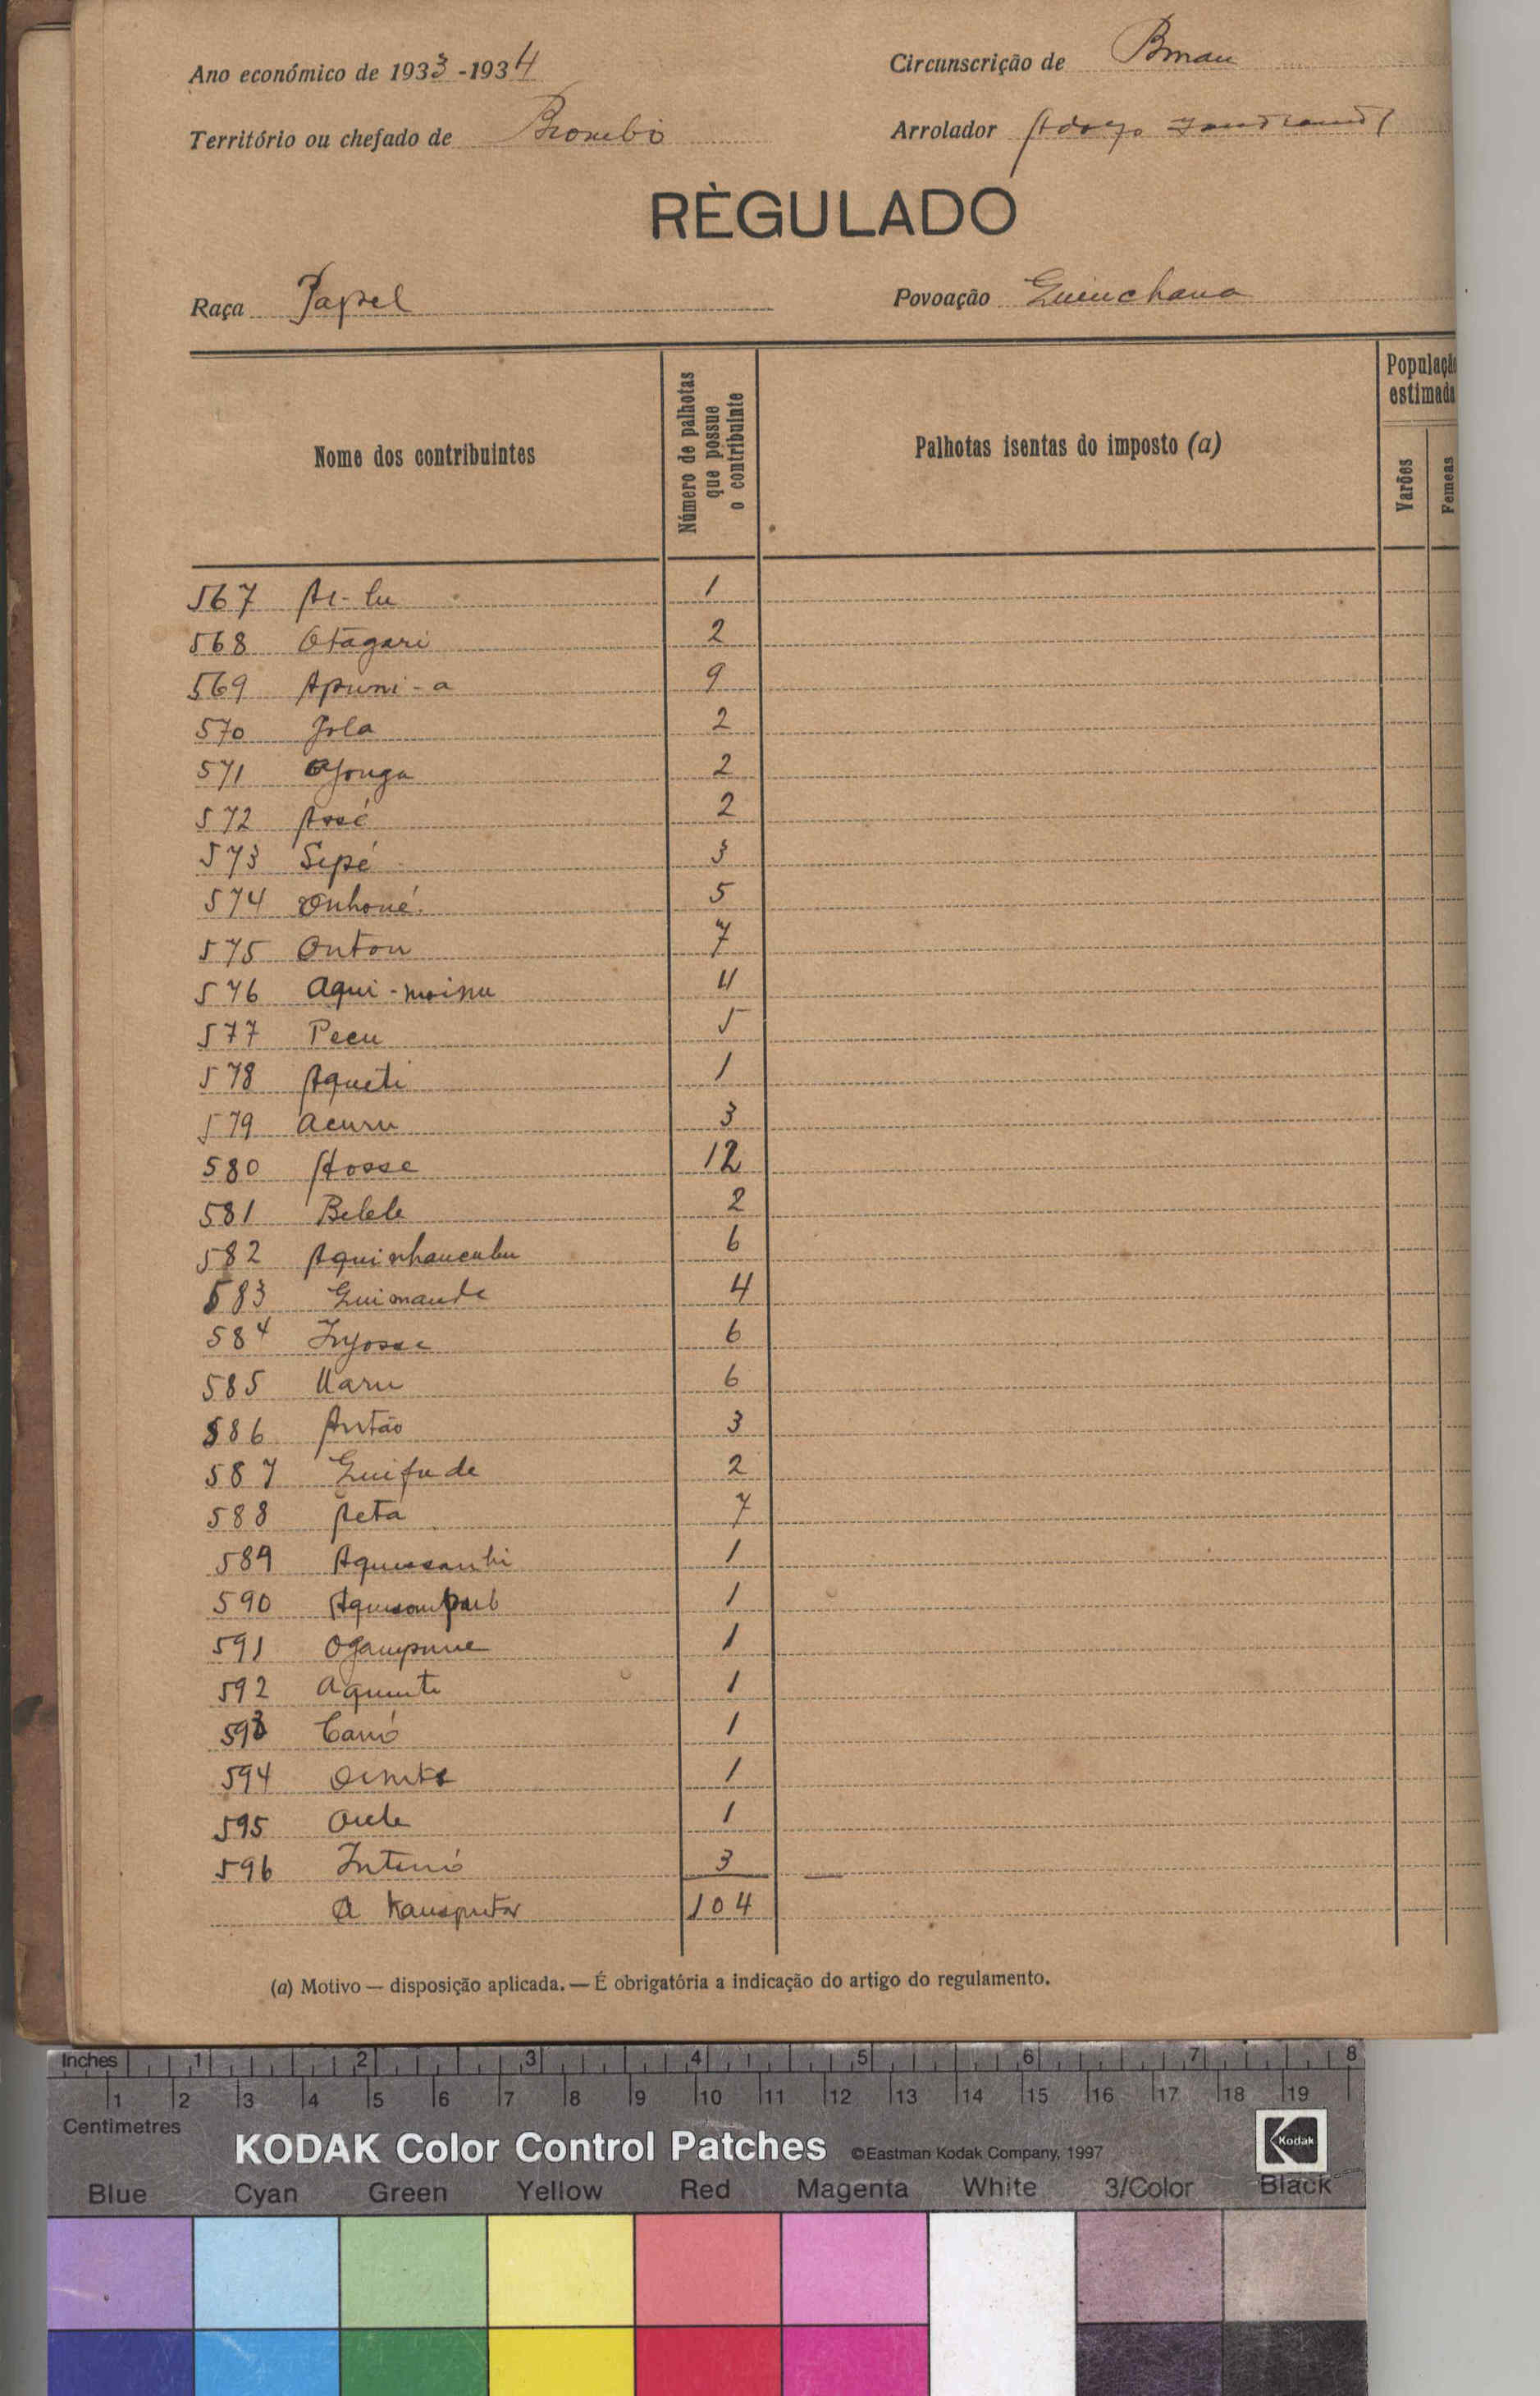 Ano económico de 1933-1934
Circunscrição de
Território ou chefado de Biombo
Arrolador
RÈGULADO
Raça Papel
Povoação Quinchana
Nome dos contribuintes
Número de palhotas que possue o contribuinte
Palhotas isentas do imposto (a)
População estimada
Varões
Femeas
567 1
568 Otagari 2
569 Apuni-a 9
570 Jola 2
571 Ofonga 2
572 Assé 2
573 Sepé 3
574 Onhoué 5
575 Onton 7
576 Aqui- 4
577 Pecu 5
578 Aqueti 1
579 Acuru 3
580 Hosse 12
581 Belele 2
582 6
583 Quimande 4
584 Injosse 6
585 Uaru 6
586 Antão 3
587 Quifude 2
588 Petá 7
589 1
590 1
591 1
592 1
593 1
594 1
595 1
596 3
A transportar 104
(a) Motivo — disposição aplicada. — É obrigatória a indicação do artigo do regulamento.
Inches 1 2 3 4 5 6 7 8
1 2 3 4 5 6 7 8 9 10 11 12 13 14 15 16 17 18 19
Centimetres
KODAK Color Control Patches ©Eastman Kodak Company, 1997 Kodak
Blue Cyan Green Yellow Red Magenta White 3/Color Black